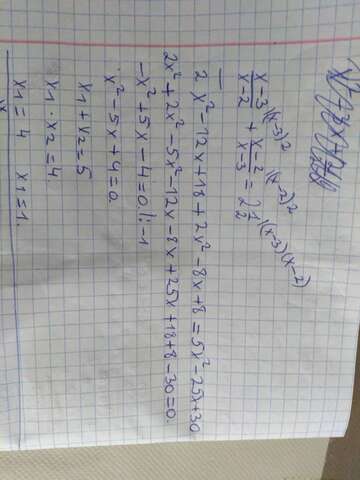 x-3/x-2 |(x-3)2 + x-2/x-3 |(x-2)2 = 2 1/2 |(x-3)(x-2)
2x²-12x+18+2x²-8x+8=5x²-25x+30
2x²+2x²-5x²-12x-8x+25x+18+8-30=0.
-x²+5x-4=0 |:-1
x²-5x+4=0.
x1+x2=5
x1·x2=4.
x1=4 x1=1.